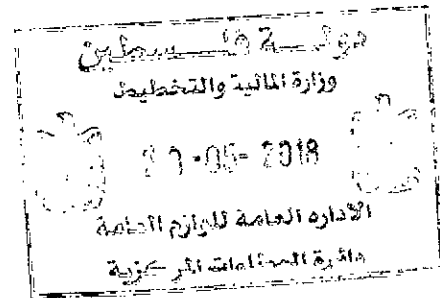 دولة فلسطين
وزارة المالية والتخطيط
-05-2018
الأداره العامة للوازم العامة
دائرة العطاءات المركزية